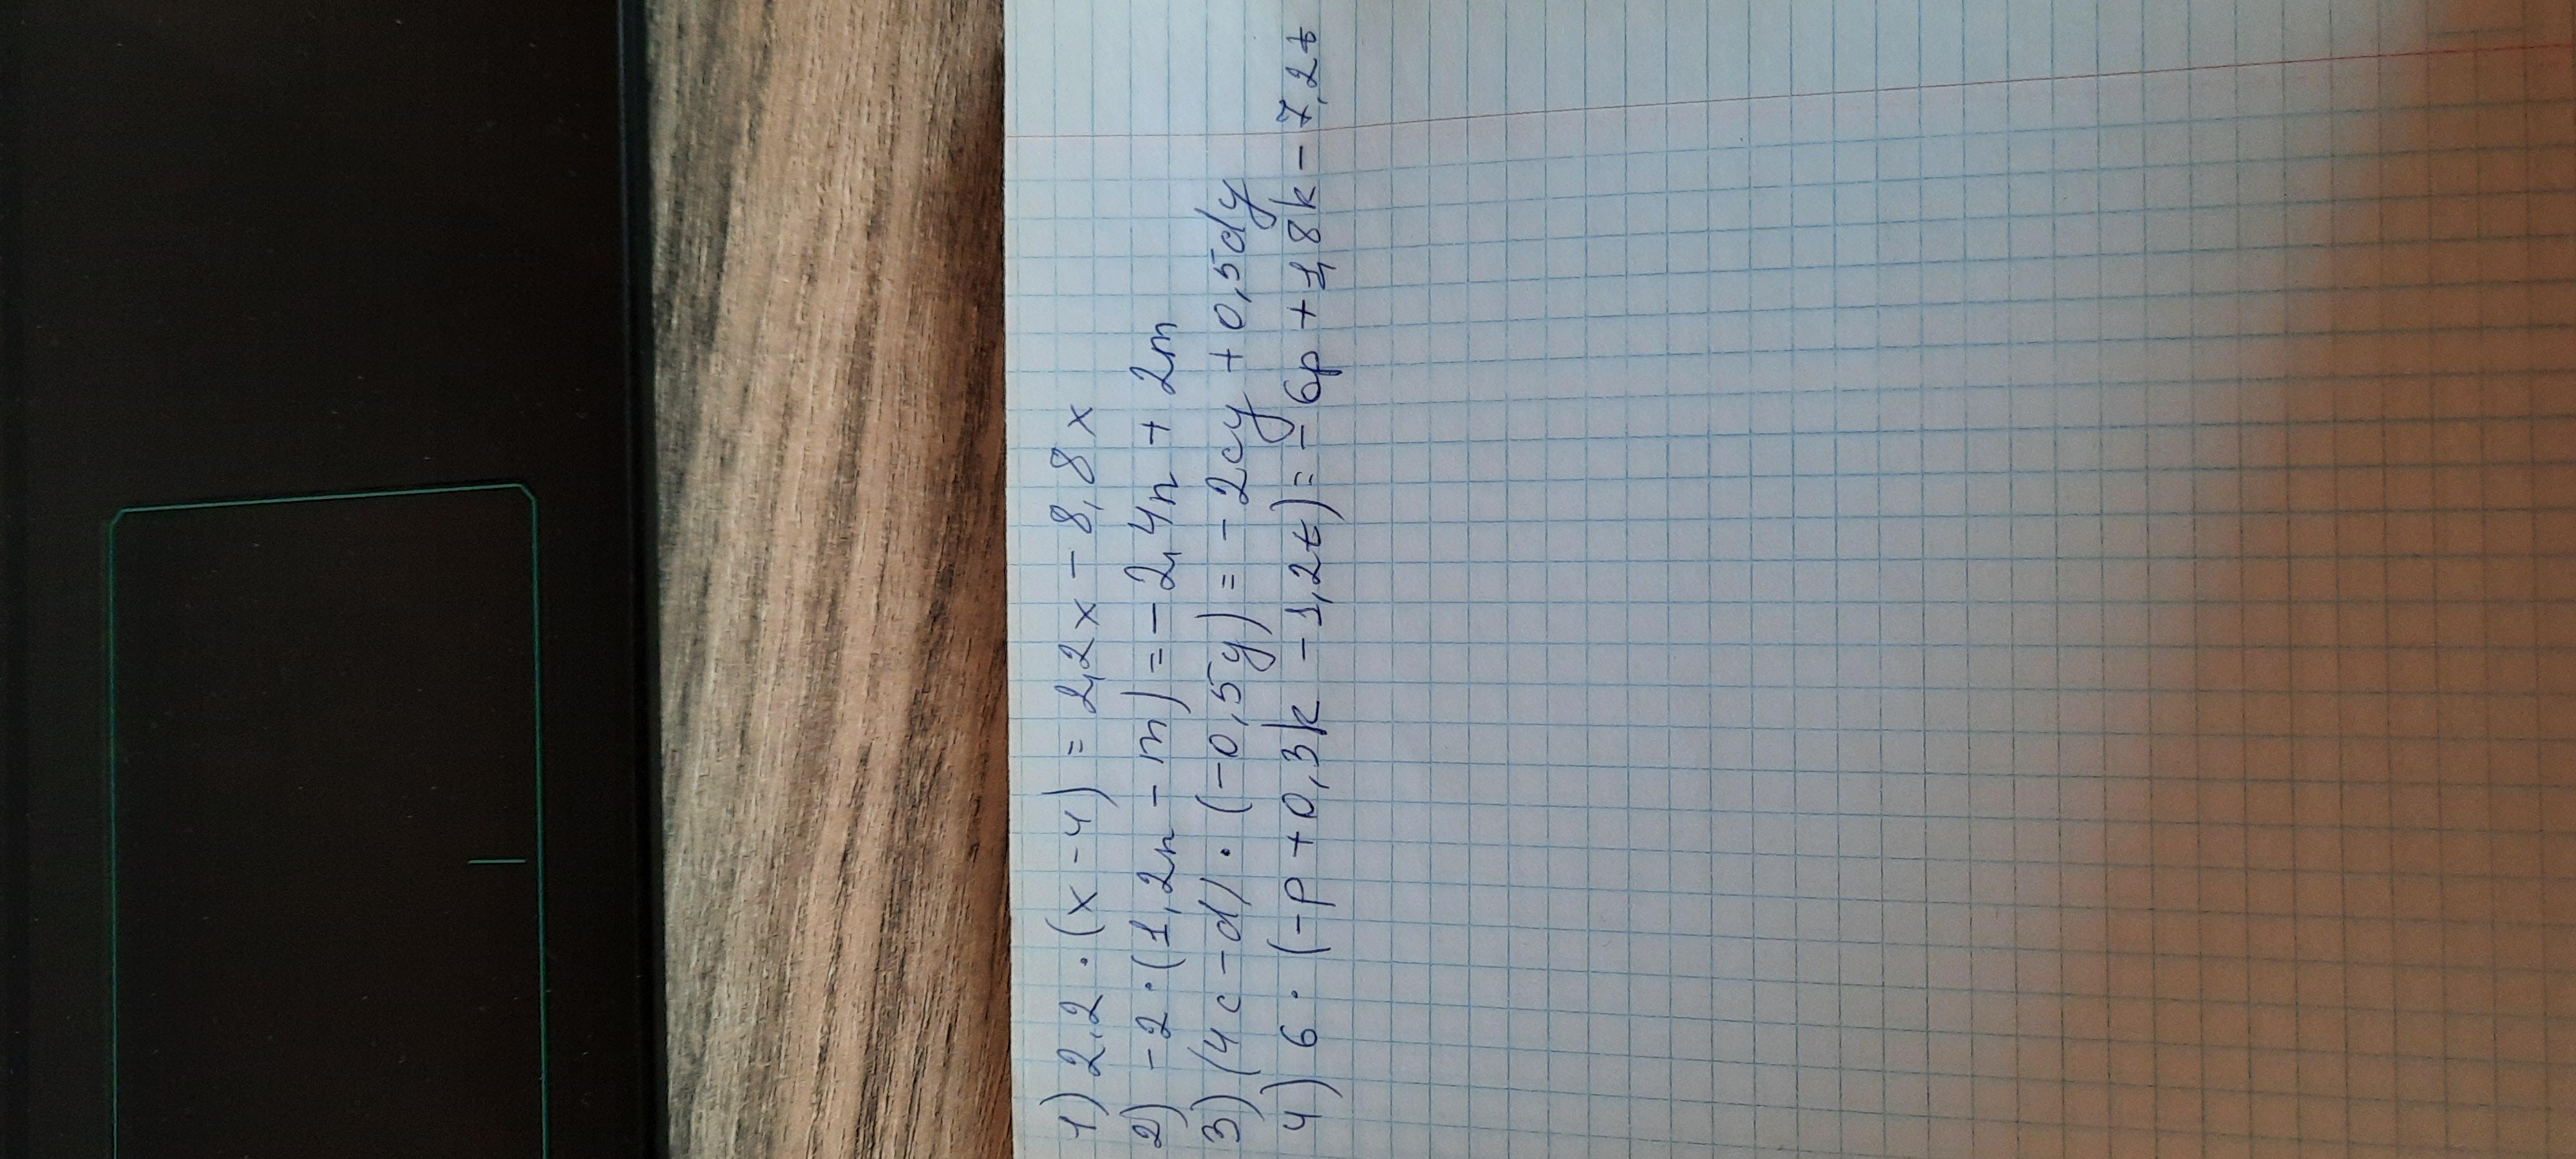 1) 2,2 · (x - 4) = 2,2x - 8,8x
2) -2 · (1,2n - m) = - 2,4n + 2m
3) (4c - d) · (-0,5y) = - 2cy + 0,5dy
4) 6 · (-p + 0,3k - 1,2t) = - 6p + 1,8k - 7,2t